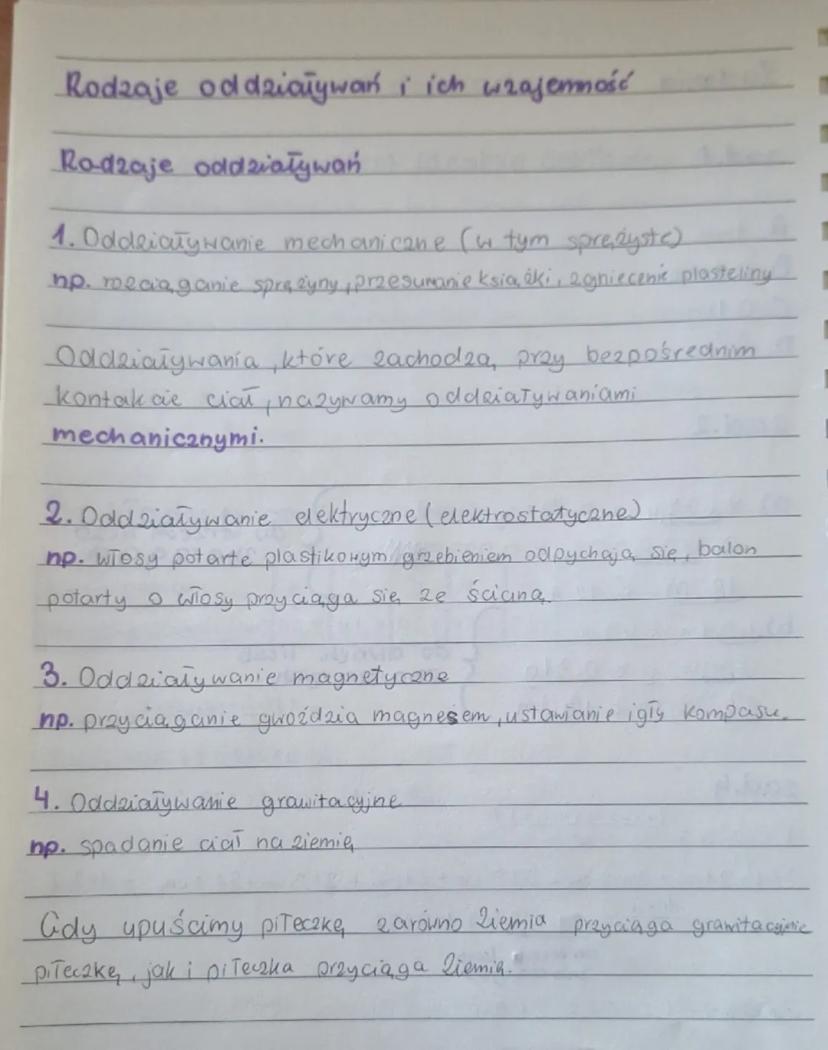 Rodzaje oddziaływań i ich wzajemność
Rodzaje oddziaływań
1. Oddziaływanie mechaniczne (w tym sprężyste)
np. rozciąganie sprężyny, przesuwanie książki, zgniecenie plasteliny
Oddziaływania, które zachodzą przy bezpośrednim
kontakcie ciał, nazywamy oddziaływaniami
mechanicznymi.
2. Oddziaływanie elektryczne (elektrostatyczne)
np. włosy potarte plastikowym grzebieniem odpychają się, balon
potarty o włosy przyciąga się ze ścianą
3. Oddziaływanie magnetyczne
np. przyciąganie gwoździa magnesem, ustawianie igły kompasu.
4. Oddziaływanie grawitacyjne
np. spadanie ciał na ziemię
Gdy upuścimy piłeczkę zarówno Ziemia przyciąga grawitacyjnie
piłeczkę, jak i piłeczka przyciąga Ziemię.